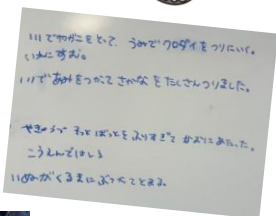 川でやがごをとって、うみでクロダイをつりにいく。
いわにすむ。
川であみをつかって さかな をたくさんつりました。
やきゅうう もっと ばっとを ふりすぎて かおりにあたった。
こうえんではしる
いぬがくるまにぶつかてとまる。